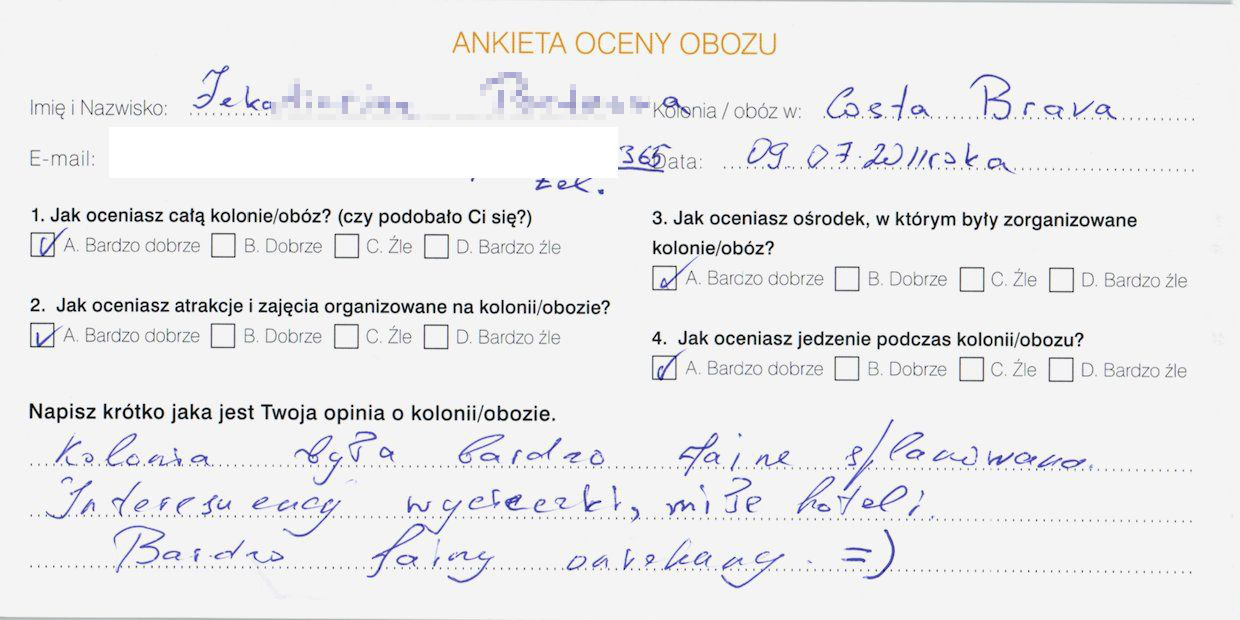 ANKIETA OCENY OBOZU
Imię i Nazwisko:
Kolonia / obóz w: Costa Brava
E-mail: 365
Data: 09.07.2011roka
1. Jak oceniasz całą kolonie/obóz? (czy podobało Ci się?)
A. Bardzo dobrze B. Dobrze C. Źle D. Bardzo źle
2. Jak oceniasz atrakcje i zajęcia organizowane na kolonii/obozie?
A. Bardzo dobrze B. Dobrze C. Źle D. Bardzo źle
3. Jak oceniasz ośrodek, w którym były zorganizowane
kolonie/obóz?
A. Bardzo dobrze B. Dobrze C. Źle D. Bardzo źle
4. Jak oceniasz jedzenie podczas kolonii/obozu?
A. Bardzo dobrze B. Dobrze C. Źle D. Bardzo źle
Napisz krótko jaka jest Twoja opinia o kolonii/obozie.
Kolonia była bardzo fajne splanowana.
Interesuency wycieczki, miłe hoteli.
Bardzo fajny =)